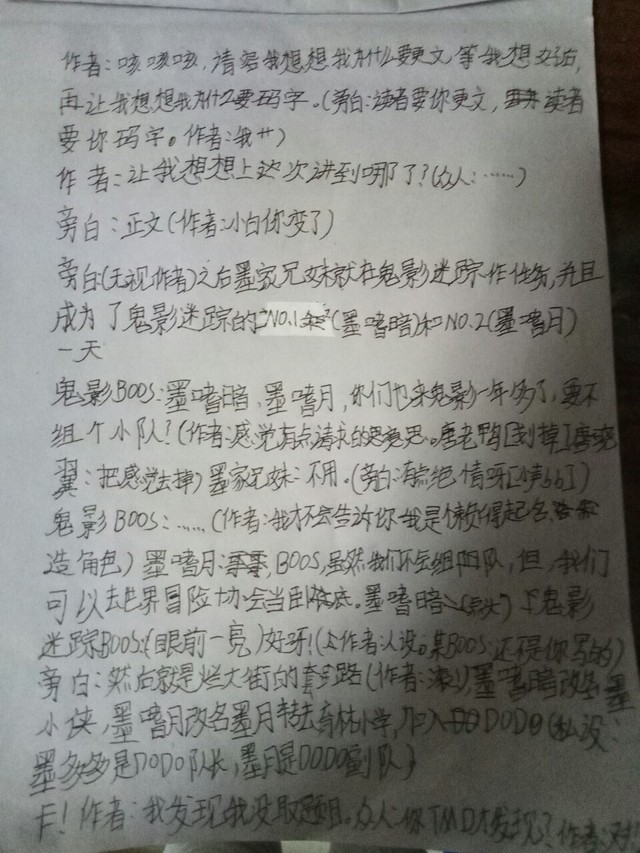 作者：咳咳咳，请容我想想我为什么要更文，等我想好后，
再让我想想我为什么要码字。(旁白：读者要你更文，读者
要你码字。作者：我艹)
作者：让我想想上次讲到哪了？(众人：……)
旁白：正文(作者：小白你变了)
旁白(无视作者)之后墨家兄妹就在鬼影迷踪作任务，并且
成为了鬼影迷踪的NO.1(墨嗜暗)和NO.2(墨嗜月)
一天
鬼影BOOS：墨嗜暗、墨嗜月，你们也来鬼影一年多了，要不
组个小队？(作者：感觉有点请求的意思。唐老鸭[划掉]唐晓
翼：把感觉去掉)墨家兄妹：不用。(旁白：有点绝情呀[小声bb])
鬼影BOOS：……(作者：我才不会告诉你我是懒得起名
造角色)墨嗜月：BOOS，虽然我们不会组队，但，我们
可以去世界冒险协会当卧底。墨嗜暗：(点头)鬼影
迷踪BOOS：(眼前一亮)好呀！(作者：人设。某BOOS：还不是你写的)
旁白：然后就是烂大街的套路(作者：滚)，墨嗜暗改名墨
小侠，墨嗜月改名墨月转去育林小学，加入DODO(私设：
墨多多是DODO队长，墨月是DODO副队)
卡！作者：我发现我没取题目。众人：你TMD才发现？作者：对